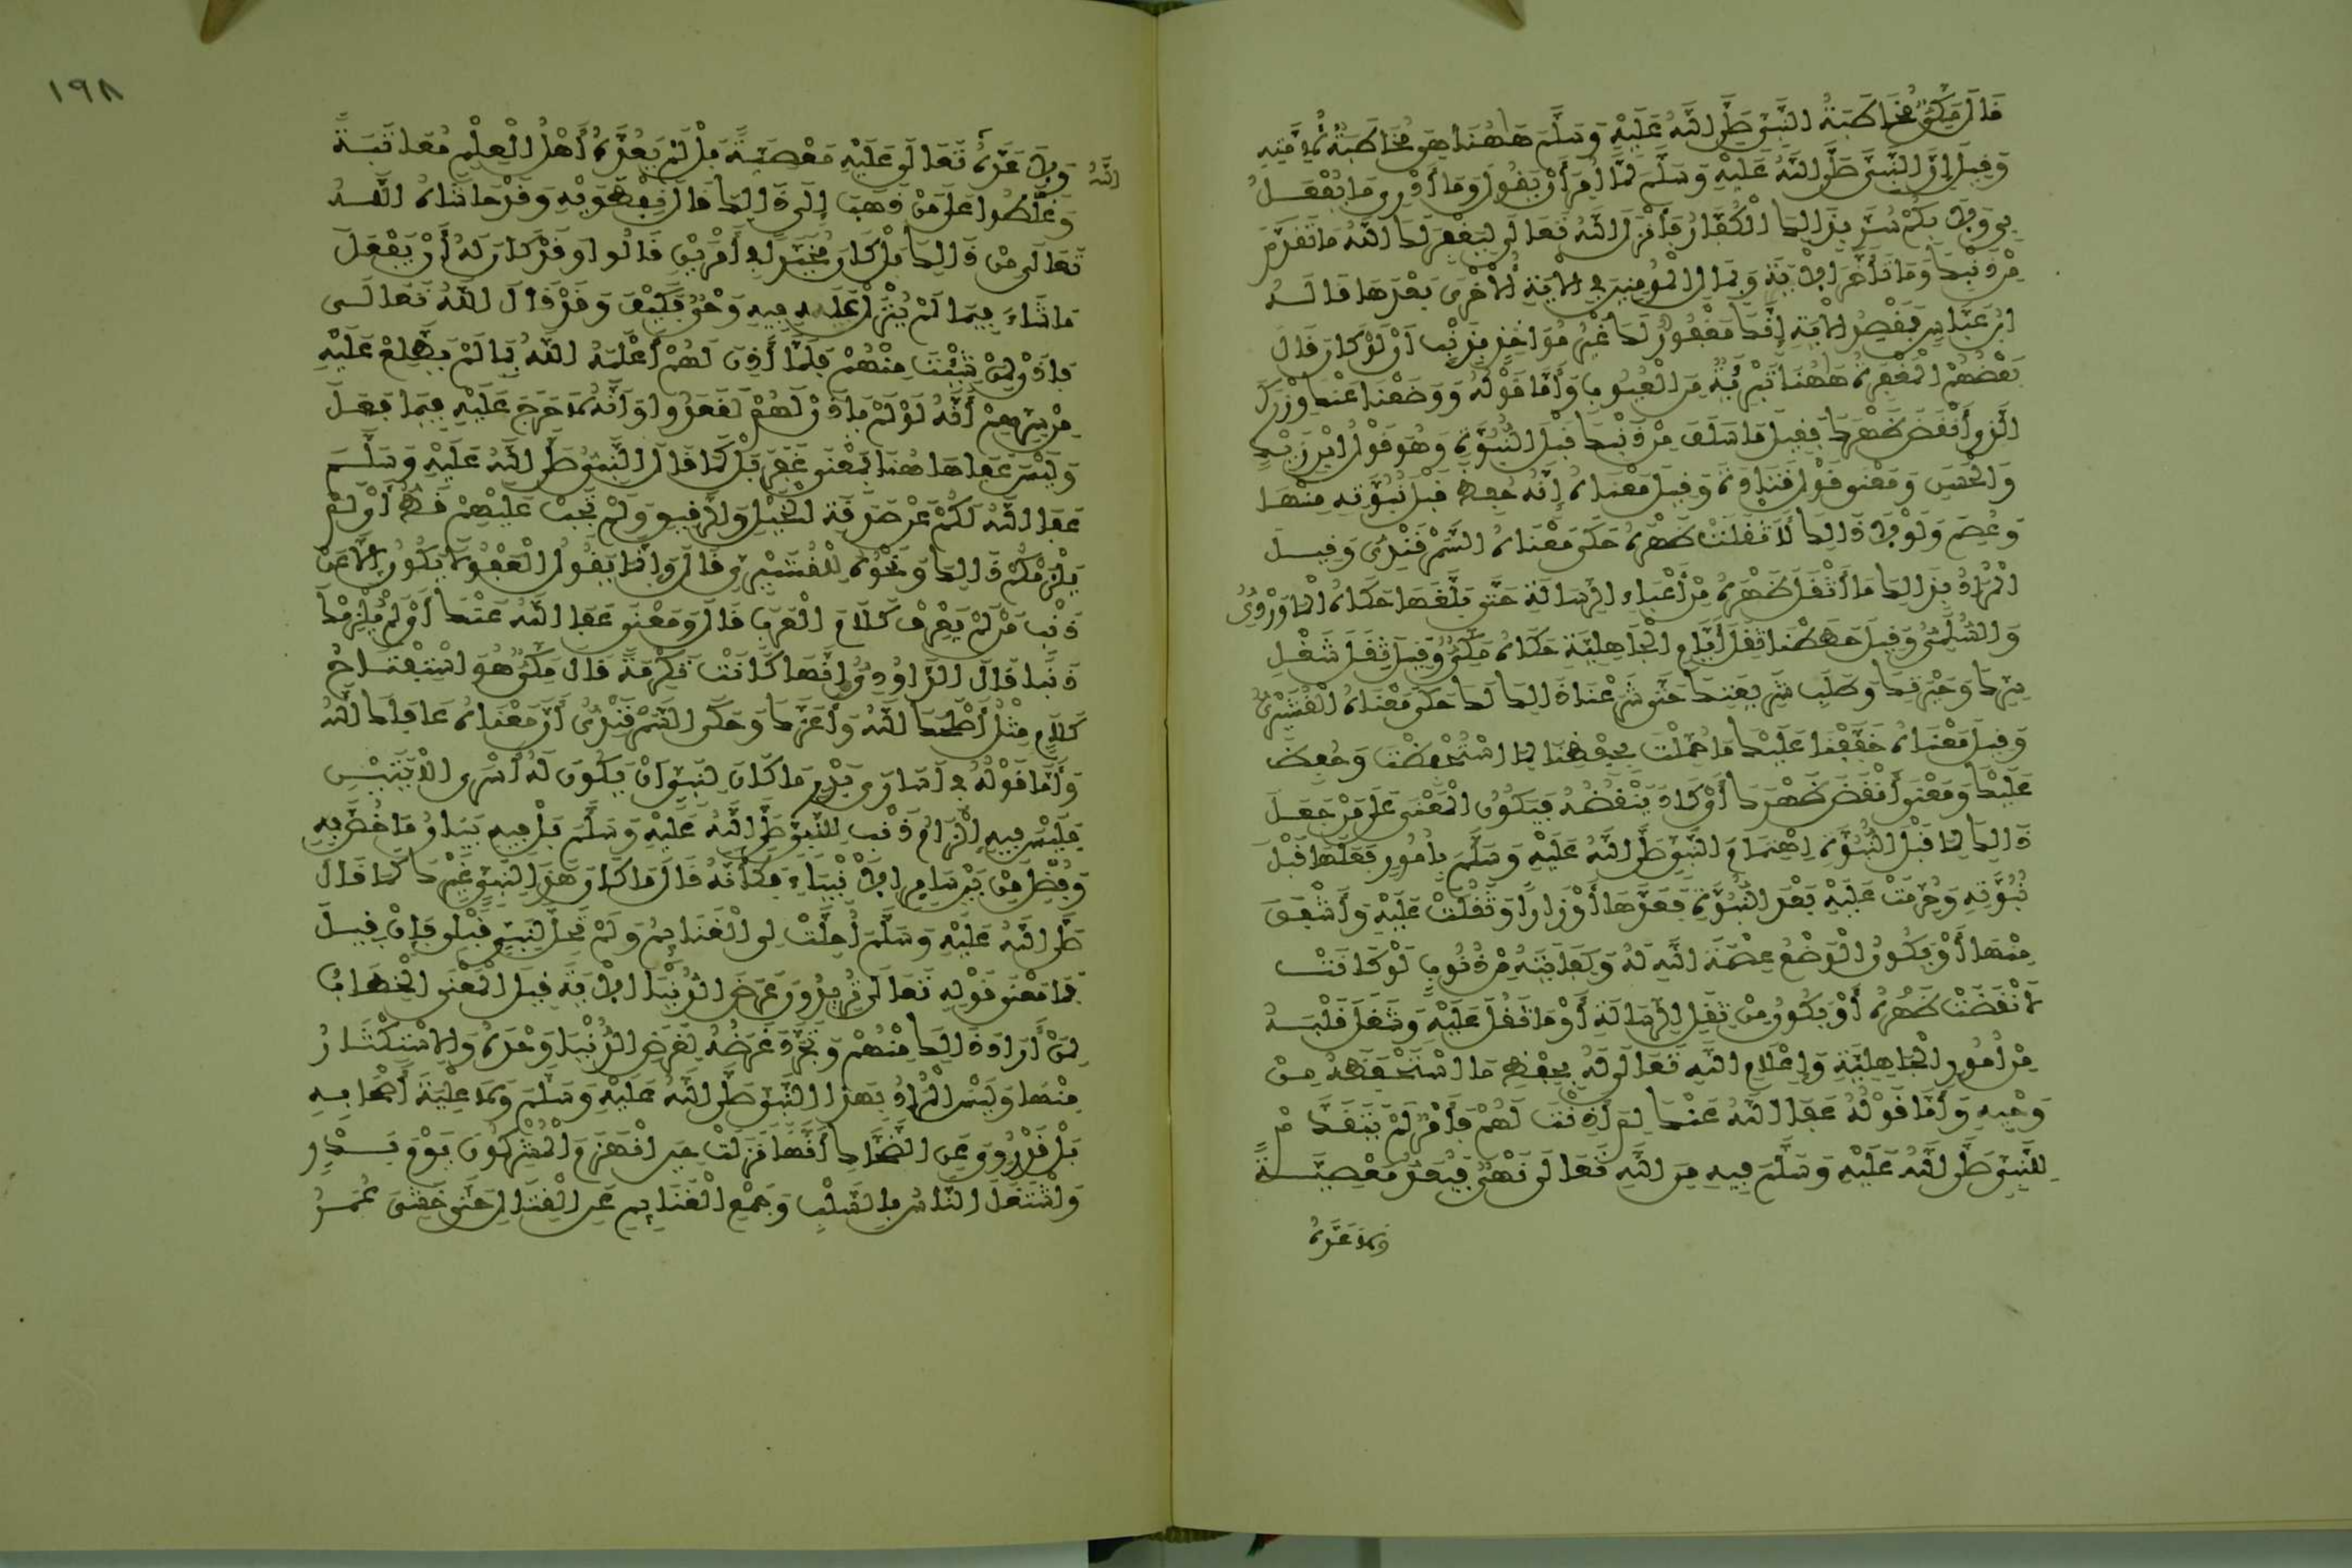 قَالَ مَكِّيٌّ مُخَاطَبَةُ النَّبِيِّ صَلَّى اللَّهُ عَلَيْهِ وَسَلَّمَ هَاهُنَا هِيَ مُخَاطَبَةٌ لِأُمَّتِهِ
وَقِيلَ إِنَّ النَّبِيَّ صَلَّى اللَّهُ عَلَيْهِ وَسَلَّمَ لَمَّا أُمِرَ أَنْ يَقُولَ وَمَا أَدْرِي مَا يُفْعَلُ
بِي وَلَا بِكُمْ سُرَّ بِذَلِكَ الْكُفَّارُ فَأَنْزَلَ اللَّهُ تَعَالَى لِيَغْفِرَ لَكَ اللَّهُ مَا تَقَدَّمَ
مِنْ ذَنْبِكَ وَمَا تَأَخَّرَ الْآيَةَ وَبِمَآلِ الْمُؤْمِنِينَ فِي الْآيَةِ الْأُخْرَى بَعْدَهَا قَالَهُ
ابْنُ عَبَّاسٍ فَمَقْصِدُ الْآيَةِ إِنَّكَ مَغْفُورٌ لَكَ غَيْرُ مُؤَاخَذٍ بِذَنْبٍ أَنْ لَوْ كَانَ قَالَ
بَعْضُهُمْ الْمَغْفِرَةُ هَاهُنَا تَبْرِئَةٌ مِنَ الْعُيُوبِ وَأَمَّا قَوْلُهُ وَوَضَعْنَا عَنْكَ وِزْرَكَ
الَّذِي أَنْقَضَ ظَهْرَكَ فَقِيلَ مَا سَلَفَ مِنْ ذَنْبِكَ قَبْلَ النُّبُوَّةِ وَهُوَ قَوْلُ ابْنِ زَيْدٍ
وَالْحَسَنِ وَمَعْنَى قَوْلِ قَتَادَةَ وَقِيلَ مَعْنَاهُ إِنَّهُ حُفِظَ قَبْلَ نُبُوَّتِهِ مِنْهَا
وَعُصِمَ وَلَوْلَا ذَلِكَ لَأَثْقَلَتْ ظَهْرَهُ حَكَى مَعْنَاهُ السَّمَرْقَنْدِيُّ وَقِيلَ
الْمُرَادُ بِذَلِكَ مَا أَثْقَلَ ظَهْرَهُ مِنْ أَعْبَاءِ الرِّسَالَةِ حَتَّى بَلَّغَهَا حَكَاهُ الْمَاوَرْدِيُّ
وَالسُّلَمِيُّ وَقِيلَ حَطَطْنَا ثِقَلَ أَيَّامِ الْجَاهِلِيَّةِ حَكَاهُ مَكِّيٌّ وَقِيلَ ثِقَلَ شَغْلِ
سِرِّكَ وَحَيْرَتِكَ وَطَلَبِ شَرِيعَتِكَ حَتَّى شَرَعْنَا ذَلِكَ لَكَ حَكَى مَعْنَاهُ الْقُشَيْرِيُّ
وَقِيلَ مَعْنَاهُ خَفَّفْنَا عَلَيْكَ مَا حُمِّلْتَ بِحِفْظِنَا لِمَا اسْتُحْفِظْتَ وَحُفِظَ
عَلَيْكَ وَمَعْنَى أَنْقَضَ ظَهْرَكَ أَوْ كَادَ يَنْقُضُهُ فَيَكُونُ الْمَعْنَى عَلَى مَنْ جَعَلَ
ذَلِكَ لِمَا قَبْلَ النُّبُوَّةِ اهْتِمَامَ النَّبِيِّ صَلَّى اللَّهُ عَلَيْهِ وَسَلَّمَ بِأُمُورٍ فَعَلَهَا قَبْلَ
نُبُوَّتِهِ وَحُرِّمَتْ عَلَيْهِ بَعْدَ النُّبُوَّةِ فَعَدَّهَا أَوْزَارًا وَثَقُلَتْ عَلَيْهِ وَأَشْفَقَ
مِنْهَا أَوْ يَكُونُ الْوَضْعُ عِصْمَةَ اللَّهِ لَهُ وَكِفَايَتَهُ مِنْ ذُنُوبٍ لَوْ كَانَتْ
لَأَنْقَضَتْ ظَهْرَهُ أَوْ يَكُونُ مِنْ ثِقَلِ الرِّسَالَةِ أَوْ مَا ثَقُلَ عَلَيْهِ وَشَغَلَ قَلْبَهُ
مِنْ أُمُورِ الْجَاهِلِيَّةِ وَإِعْلَامِ اللَّهِ تَعَالَى لَهُ بِحِفْظِ مَا اسْتَحْفَظَهُ مِنْ
وَحْيِهِ وَأَمَّا قَوْلُهُ عَفَا اللَّهُ عَنْكَ لِمَ أَذِنْتَ لَهُمْ فَأَمْرٌ لَمْ يَتَقَدَّمْ
لِلنَّبِيِّ صَلَّى اللَّهُ عَلَيْهِ وَسَلَّمَ فِيهِ مِنَ اللَّهِ تَعَالَى نَهْيٌ فَيُعَدُّ مَعْصِيَةً
وَلَا عَدَّهُ
١٩٨
اللَّهُ
وَلَا عَدَّهُ تَعَالَى عَلَيْهِ مَعْصِيَةً بَلْ لَمْ يَعُدَّهُ أَهْلُ الْعِلْمِ مُعَاتَبَةً
وَغَلَّطُوا عَلَى مَنْ ذَهَبَ إِلَى ذَلِكَ قَالَ نِفْطَوَيْهِ وَقَدْ حَاشَاهُ اللَّهُ
تَعَالَى مِنْ ذَلِكَ بَلْ كَانَ مُخَيَّرًا فِي أَمْرَيْنِ قَالُوا وَقَدْ كَانَ لَهُ أَنْ يَفْعَلَ
مَا شَاءَ فِيمَا لَمْ يُنْزَلْ عَلَيْهِ فِيهِ وَحْيٌ فَكَيْفَ وَقَدْ قَالَ اللَّهُ تَعَالَى
فَأْذَنْ لِمَنْ شِئْتَ مِنْهُمْ فَلَمَّا أَذِنَ لَهُمْ أَعْلَمَهُ اللَّهُ بِمَا لَمْ يَطَّلِعْ عَلَيْهِ
مِنْ سِرِّهِمْ أَنَّهُ لَوْ لَمْ يَأْذَنْ لَهُمْ لَقَعَدُوا وَأَنَّهُ لَا حَرَجَ عَلَيْهِ فِيمَا فَعَلَ
وَلَيْسَ عَفَا هَاهُنَا بِمَعْنَى غَفَرَ بَلْ كَمَا قَالَ النَّبِيُّ صَلَّى اللَّهُ عَلَيْهِ وَسَلَّمَ
عَفَا اللَّهُ لَكُمْ عَنْ صَدَقَةِ الْخَيْلِ وَالرَّقِيقِ وَلَمْ تَجِبْ عَلَيْهِمْ قَطُّ أَيْ لَمْ
يُلْزِمْكُمْ ذَلِكَ وَنَحْوُهُ لِلْقُشَيْرِيِّ قَالَ وَإِنَّمَا يَقُولُ الْعَفْوُ لَا يَكُونُ إِلَّا عَنْ
ذَنْبٍ مَنْ لَمْ يَعْرِفْ كَلَامَ الْعَرَبِ قَالَ وَمَعْنَى عَفَا اللَّهُ عَنْكَ أَيْ لَمْ يُلْزِمْكَ
ذَنْبًا قَالَ الدَّاوُدِيُّ إِنَّهَا كَانَتْ تَكْرِمَةً قَالَ مَكِّيٌّ هُوَ اسْتِفْتَاحُ
كَلَامٍ مِثْلُ أَصْلَحَكَ اللَّهُ وَأَعَزَّكَ وَحَكَى السَّمَرْقَنْدِيُّ أَنَّ مَعْنَاهُ عَافَاكَ اللَّهُ
وَأَمَّا قَوْلُهُ فِي أُسَارَى بَدْرٍ مَا كَانَ لِنَبِيٍّ أَنْ يَكُونَ لَهُ أَسْرَى الْآيَتَيْنِ
فَلَيْسَ فِيهِ إِلْزَامُ ذَنْبٍ لِلنَّبِيِّ صَلَّى اللَّهُ عَلَيْهِ وَسَلَّمَ بَلْ فِيهِ بَيَانُ مَا خُصَّ بِهِ
وَفُضِّلَ مِنْ بَيْنِ سَائِرِ الْأَنْبِيَاءِ فَكَأَنَّهُ قَالَ مَا كَانَ هَذَا لِنَبِيٍّ غَيْرِكَ كَمَا قَالَ
صَلَّى اللَّهُ عَلَيْهِ وَسَلَّمَ أُحِلَّتْ لِي الْغَنَائِمُ وَلَمْ تَحِلَّ لِنَبِيٍّ قَبْلِي فَإِنْ قِيلَ
فَمَا مَعْنَى قَوْلِهِ تَعَالَى تُرِيدُونَ عَرَضَ الدُّنْيَا الْآيَةَ قِيلَ الْمَعْنَى الْخِطَابُ
لِمَنْ أَرَادَ ذَلِكَ مِنْهُمْ وَتَجَرَّدَ غَرَضُهُ لِعَرَضِ الدُّنْيَا وَحْدَهُ وَالِاسْتِكْثَارُ
مِنْهَا وَلَيْسَ الْمُرَادُ بِهَذَا النَّبِيَّ صَلَّى اللَّهُ عَلَيْهِ وَسَلَّمَ وَلَا عِلْيَةَ أَصْحَابِهِ
بَلْ قَدْ رُوِيَ عَنِ الضَّحَّاكِ أَنَّهَا نَزَلَتْ حِينَ انْهَزَمَ الْمُشْرِكُونَ يَوْمَ بَدْرٍ
وَاشْتَغَلَ النَّاسُ بِالسَّلَبِ وَجَمْعِ الْغَنَائِمِ عَنِ الْقِتَالِ حَتَّى خَشِيَ عُمَرُ